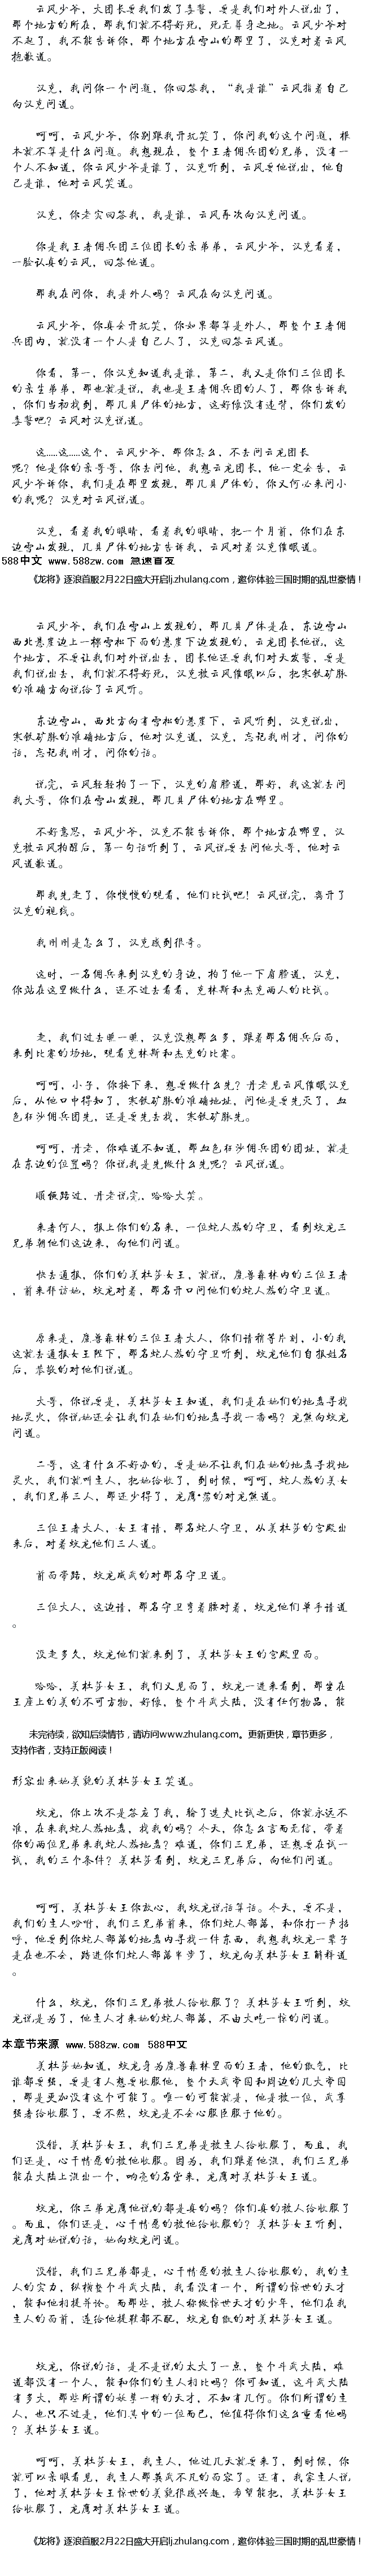 云风少爷，大团长要我们发了喜誓，要是我们对外人说出了，
那个地方的所在，那我们就不得好死，死无葬身之地。云风少爷对
不起了，我不能告诉你，那个地方在雪山的那里了，汉克对着云风
抱歉道。
汉克，我问你一个问题，你回答我，“我是谁”云风指着自己
向汉克问道。
呵呵，云风少爷，你别跟我开玩笑了，你问我的这个问题，根
本就不算是什么问题。我想现在，整个王者佣兵团的兄弟，没有一
个人不知道，你云风少爷是谁了，汉克听到，云风要他说出，他自
己是谁，他对云风笑道。
汉克，你老实回答我，我是谁，云风再次向汉克问道。
你是我王者佣兵团三位团长的亲弟弟，云风少爷，汉克看着，
一脸认真的云风，回答他道。
那我在问你，我是外人吗？云风在向汉克问道。
云风少爷，你真会开玩笑，你如果都算是外人，那整个王者佣
兵团内，就没有一个人是自己人了，汉克回答云风道。
你看，第一，你汉克知道我是谁，第二，我又是你们三位团长
的亲生弟弟，那也就是说，我也是王者佣兵团的人了，那你告诉我
，你们当初找到，那几具尸体的地方，这好像没有违背，你们发的
喜誓吧？云风对汉克说道。
这.....这.....这个，云风少爷，那你怎么，不去问云龙团长
呢？他是你的亲哥哥，你去问他，我想云龙团长，他一定会告，云
风少爷诉你，我们是在那里发现，那几具尸体的，你又何必来问小
的我呢？汉克对云风说道。
汉克，看着我的眼睛，看着我的眼睛，把一个月前，你们在东
边雪山发现，几具尸体的地方告诉我，云风对着汉克催眠道。
588中文 www.588zw.com 急速首发
《龙将》逐浪首服2月22日盛大开启lj.zhulang.com，邀你体验三国时期的乱世豪情！
云风少爷，我们在雪山上发现的，那几具尸体是在，东边雪山
西北悬崖边上一棵雪松下面的悬崖下边发现的，云龙团长他说，这
个地方，不要让我们对外说出去，团长他还要我们对天发誓，要是
我们说出去，我们就不得好死，汉克被云风催眠以后，把寒铁矿脉
的准确方向说给了云风听。
东边雪山，西北方向有雪松的悬崖下，云风听到，汉克说出，
寒铁矿脉的准确地方后，他对汉克道，汉克，忘记我刚才，问你的
话，忘记我刚才，问你的话。
说完，云风轻轻拍了一下，汉克的肩膀道，那好，我这就去问
我大哥，你们在雪山发现，那几具尸体的地方在哪里。
不好意思，云风少爷，汉克不能告诉你，那个地方在哪里，汉
克被云风拍醒后，第一句话听到了，云风说要去问他大哥，他对云
风道歉道。
那我先走了，你慢慢的观看，他们比试吧！云风说完，离开了
汉克的视线。
我刚刚是怎么了，汉克感到很奇。
这时，一名佣兵来到汉克的身边，拍了他一下肩膀道，汉克，
你站在这里做什么，还不过去看看，克林斯和杰克两人的比试。
走，我们过去瞧一瞧，汉克没想那么多，跟着那名佣兵后面，
来到比赛的场地，观看克林斯和杰克的比赛。
呵呵，小子，你接下来，想要做什么先？丹老见云风催眠汉克
后，从他口中得知了，寒铁矿脉的准确地址，问他是要先灭了，血
色狂沙佣兵团先，还是要先去找，寒铁矿脉先。
呵呵，丹老，你难道不知道，那血色狂沙佣兵团的团址，就是
在东边的位置吗？你说我是先做什么先呢？云风说道。
顺候路过，丹老说完，哈哈大笑。
来者何人，报上你们的名来，一位蛇人族的守卫，看到蛟龙三
兄弟朝他们这边来，向他们问道。
快去通报，你们的美杜莎女王，就说，魔兽森林内的三位王者，
前来拜访她，蛟龙对着，那名开口问他们的蛇人族的守卫道。
原来是，魔兽森林的三位王者大人，你们请稍等片刻，小的我
这就去通报女王陛下，那名蛇人族的守卫听到，蛟龙他们自报姓名
后，恭敬的对他们说道。
大哥，你说要是，美杜莎女王知道，我们是在她们的地盘寻找
地灵火，你说她还会让我们在她们的地盘寻找一番吗？龙熊向蛟龙
问道。
二哥，这有什么不好办的，要是她不让我们在她的地盘寻找地
灵火，我们就叫主人，把她给收了，到时候，呵呵，蛇人族的美女
，我们兄弟三人，那还少得了，龙鹰·荡的对龙熊道。
三位王者大人，女王有请，那名蛇人守卫，从美杜莎的宫殿出
来后，对着蛟龙他们三人道。
前面带路，蛟龙威武的对那名守卫道。
三位大人，这边请，那名守卫弯着腰对着，蛟龙他们单手请道
。
没走多久，蛟龙他们就来到了，美杜莎女王的宫殿里面。
哈哈，美杜莎女王，我们又见面了，蛟龙一进来看到，那坐在
王座上的美的不可方物，好像，整个斗武大陆，没有任何物品，能
未完待续，欲知后续情节，请访问www.zhulang.com。更新更快，章节更多，
支持作者，支持正版阅读！
形容出来她美貌的美杜莎女王笑道。
蛟龙，你上次不是答应了我，输了选夫比试之后，你就永远不
准，在来我蛇人族地盘，找我的吗？今天，你怎么言而无信，带着
你的两位兄弟来我蛇人族地盘？难道，你们三兄弟，还想要在试一
试，我的三个条件？美杜莎看到，蛟龙三兄弟后，向他们问道。
呵呵，美杜莎女王你放心，我蛟龙说话算话。今天，要不是，
我们的主人吩咐，我们三兄弟前来，你们蛇人部落，和你打一声招
呼，他要到你蛇人部落的地盘内寻找一件东西，我想我蛟龙一辈子
是在也不会，踏进你们蛇人部落半步了，蛟龙向美杜莎女王解释道
。
什么，蛟龙，你们三兄弟被人给收服了？美杜莎女王听到，蛟
龙说是为了，他主人才来她的蛇人部落，不由大吃一惊的问道。
本章节来源 www.588zw.com 588中文
美杜莎她知道，蛟龙身为魔兽森林里面的王者，他的傲气，比
谁都要强，要是有人想要收服他，整个天武帝国和周边的几大帝国
，那是更加没有这个可能了。唯一的可能就是，他是被一位，武尊
强者给收服了，要不然，蛟龙是不会心服臣服于他的。
没错，美杜莎女王，我们三兄弟是被主人给收服了，而且，我
们还是，心干情愿的被他收服。因为，我们跟着他混，我们三兄弟
能在大陆上混出一个，响亮的名堂来，龙鹰对美杜莎女王道。
蛟龙，你三弟龙鹰他说的都是真的吗？你们真的被人给收服了
。而且，你们还是，心干情愿的被他给收服的？美杜莎女王听到，
龙鹰对她说的话，她向蛟龙问道。
没错，我们三兄弟都是，心干情愿的被主人给收服的，我的主
人的实力，纵横整个斗武大陆，我看没有一个，所谓的惊世的天才
，能和他相提并论。而那些，被人称做惊世天才的少年，他们在我
主人的面前，连给他提鞋都不配，蛟龙自傲的对美杜莎女王道。
蛟龙，你说的话，是不是说的太大了一点，整个斗武大陆，难
道都没有一个人，能和你们的主人相比吗？你可知道，这斗武大陆
有多大，那些所谓的妖孽一样的天才，不知有几何。你们所谓的主
人，也只不过是，他们其中的一位而已，他值得你们这么重看他吗
？美杜莎女王道。
呵呵，美杜莎女王，我主人，他过几天就要来了，到时候，你
就可以亲眼看见，我主人那英武不凡的面容了。还有，我家主人说
了，他对美杜莎女王惊世的美貌很感兴趣，希望能把，美杜莎女王
给收服了，龙鹰对美杜莎女王道。
《龙将》逐浪首服2月22日盛大开启lj.zhulang.com，邀你体验三国时期的乱世豪情！